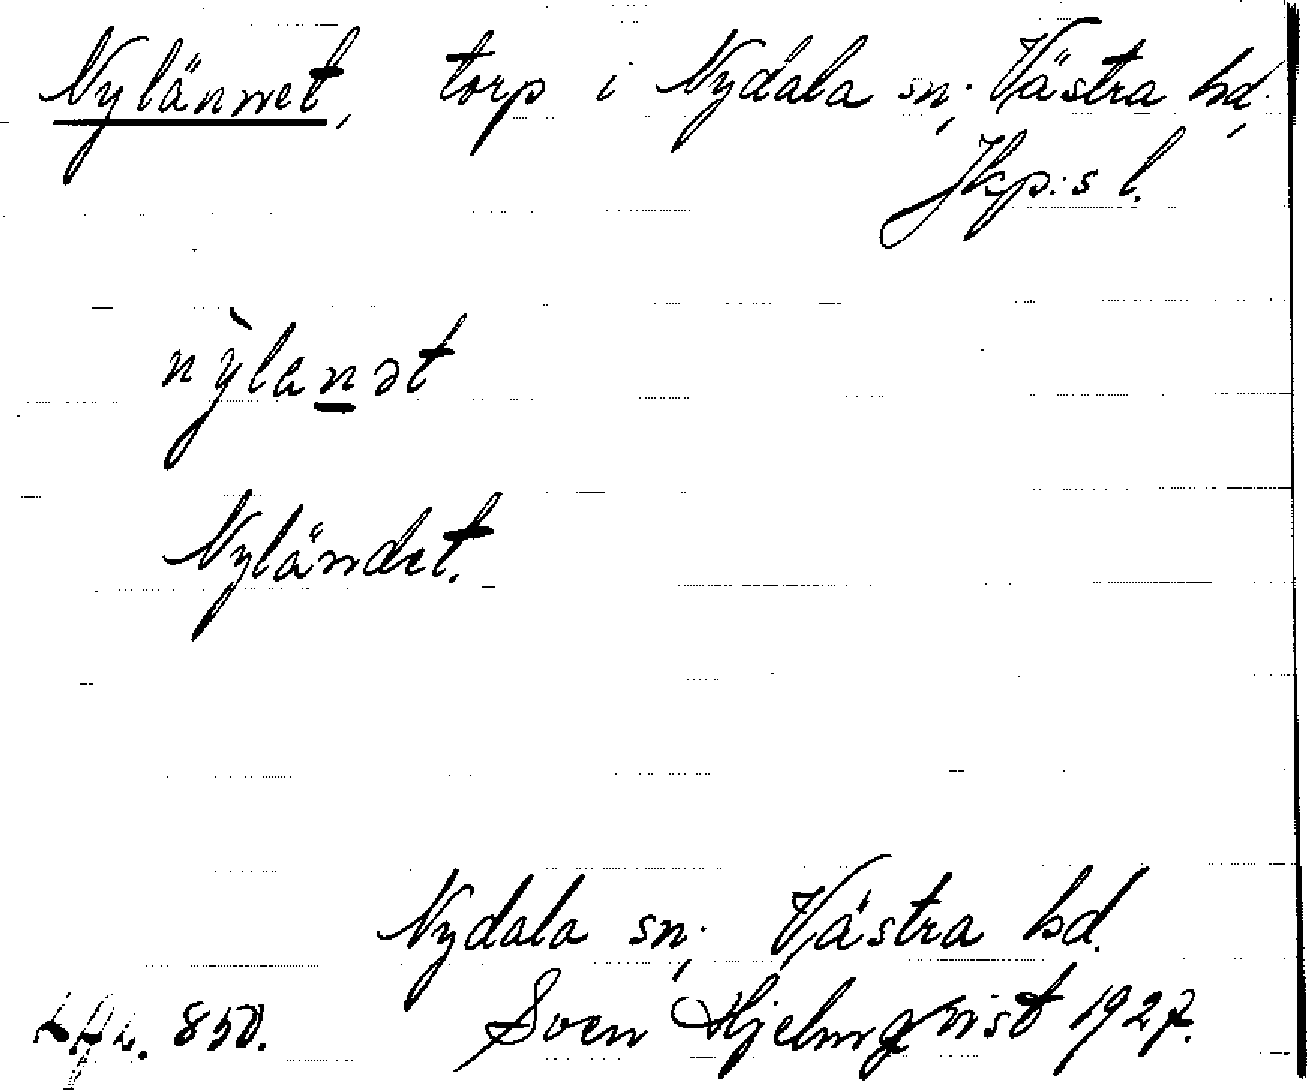 Nylännet, torp i Nydala sn; Västra hd,
Jkp:s l.
nỳlanət
Nyländet.
Nydala sn; Västra hd.
850. Sven Hjelmqvist 1927.